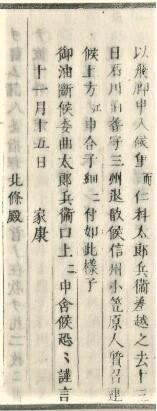 以飛脚申入候重而仁科太郎兵衛差越之去十三
日石川伯耆守三州退散候信州小笠原人質召連
候上方江申合子細ニ付如此様子
御油断候委曲太郎兵衛口上ニ申含候恐〻謹言
十一月十五日　家康
北條殿